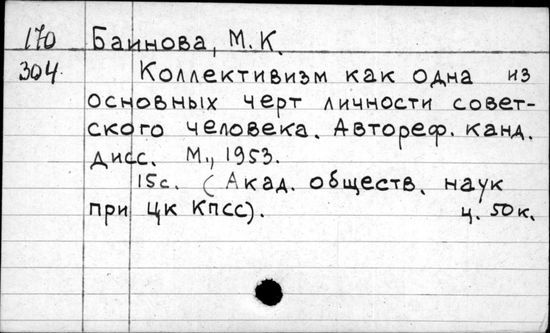 170 Баинова, М. К.
304. Коллективизм как одна из
основных черт личности совет-
ского человека. Автореф. канд.
дисс. М., 1953.
15с. (Акад. обществ. наук
при ЦК КПСС). ц. 50к.